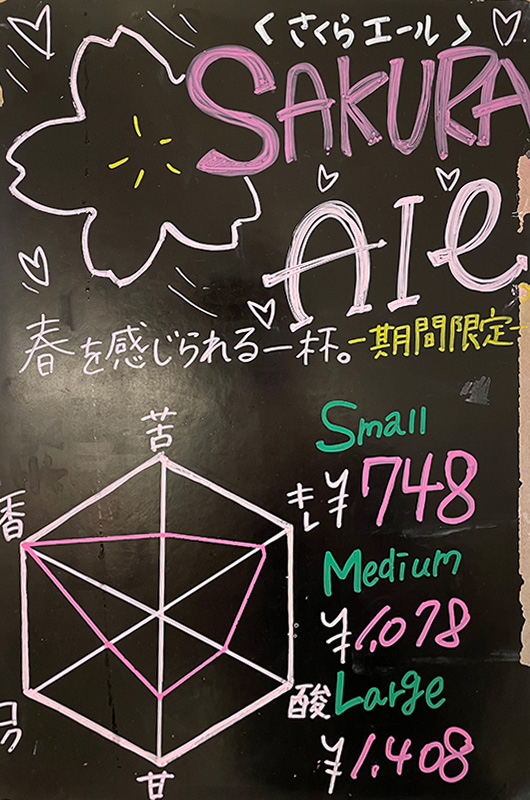 〈さくらエール〉
SAKURA
Ale
春を感じられる一杯。-期間限定-
苦
香
キレ
コク
酸
甘
Small
¥748
Medium
¥1,078
Large
¥1,408